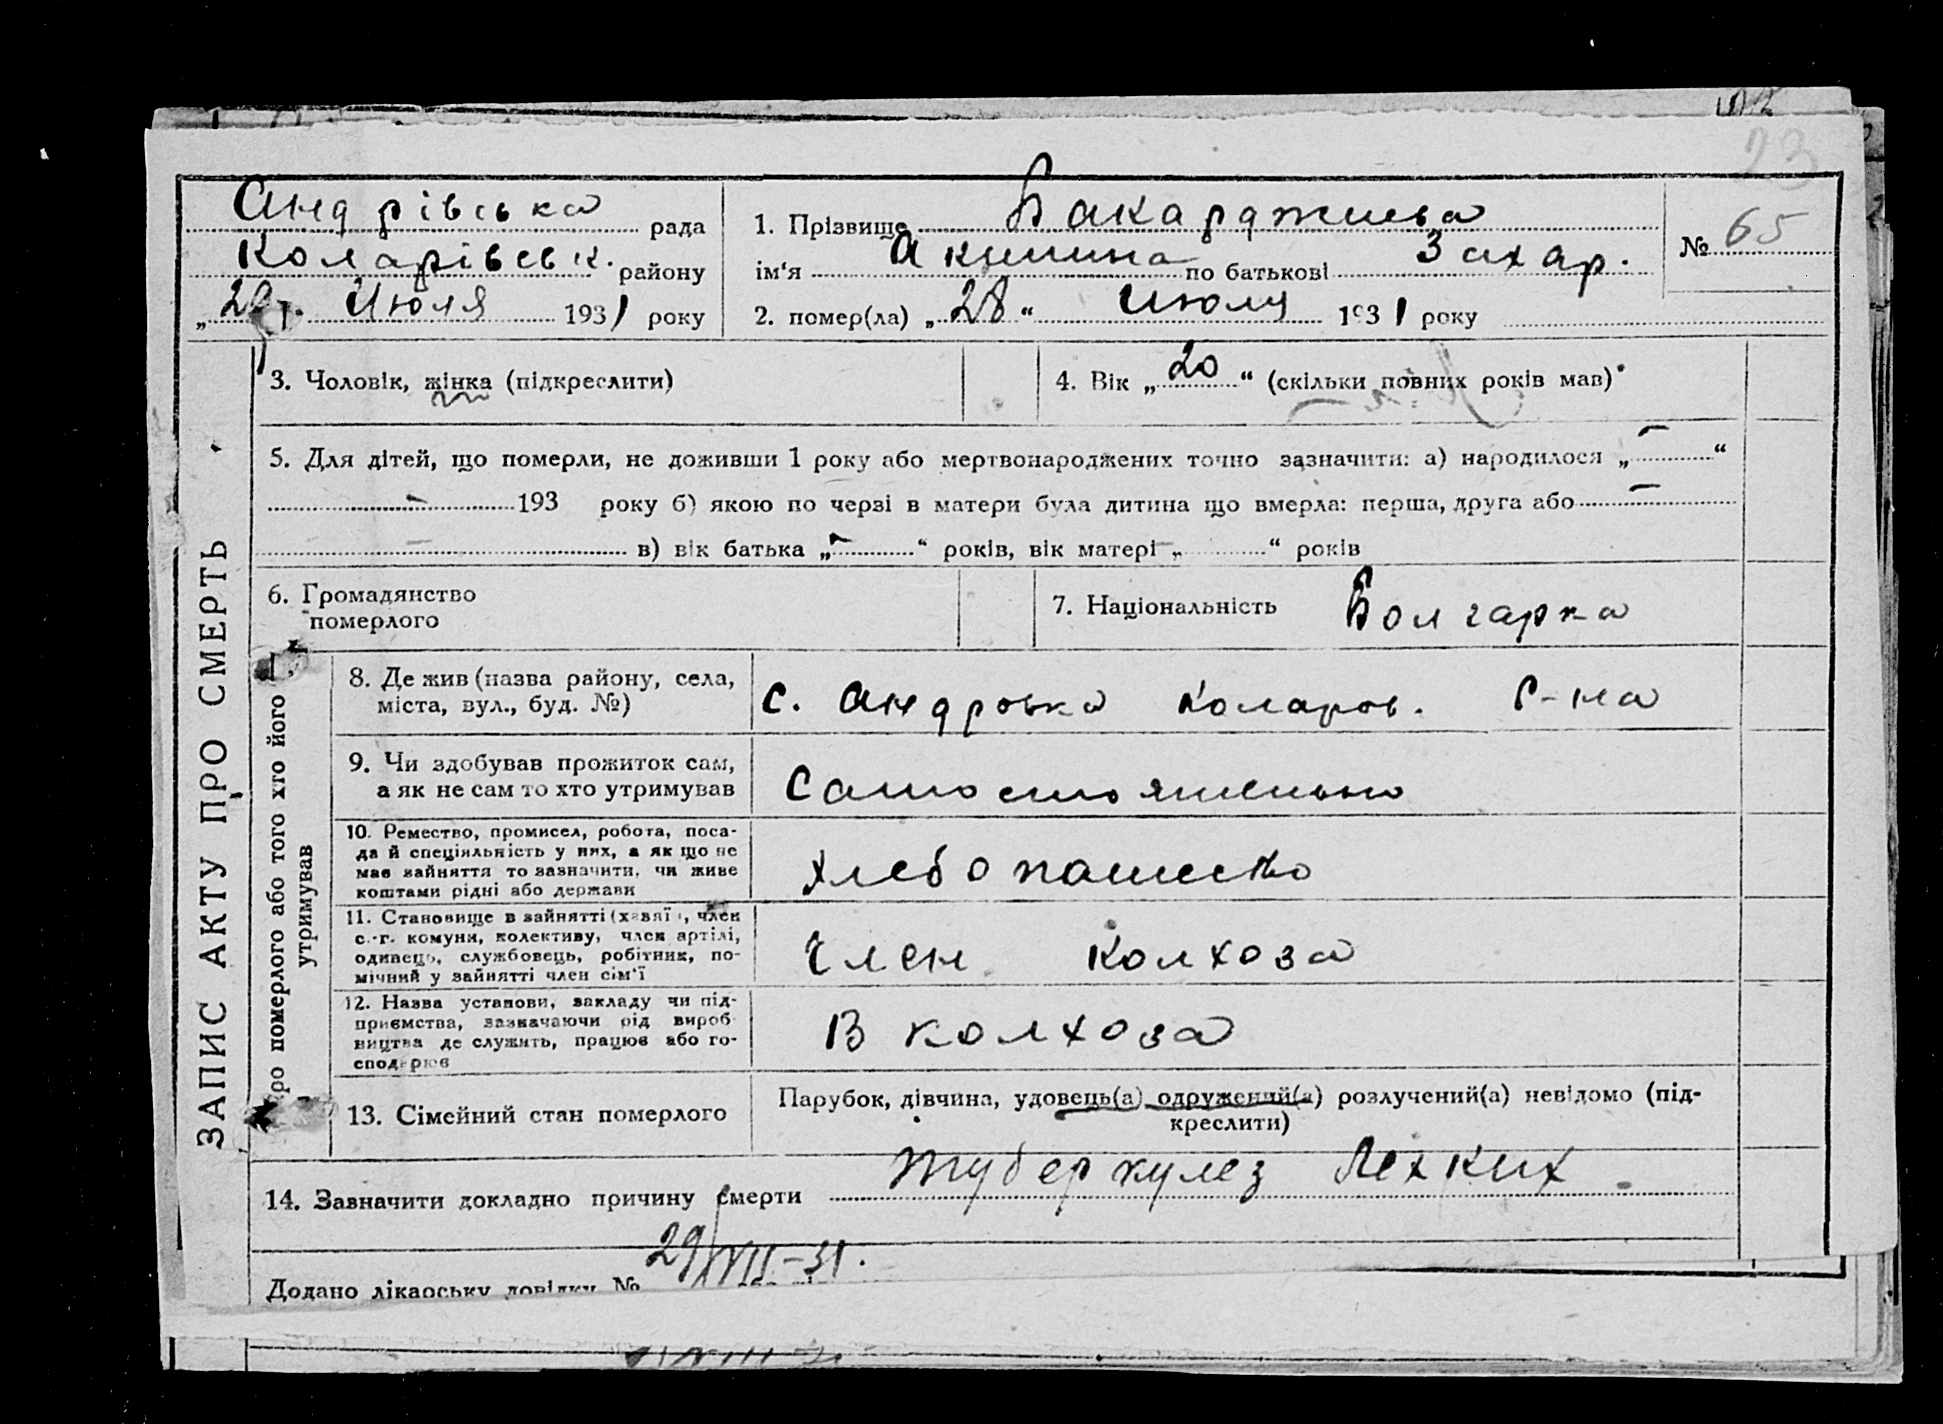 23
Андрівська рада
Коларівськ. району
„ 29 “ Июля 1931 року
1. Прізвище Бакарджиева
ім'я Акулина по батькові Захар.
2. помер(ла) „ 28 “ Июля 1931 року
№ 65
ЗАПИС АКТУ ПРО СМЕРТЬ
3. Чоловік, жінка (підкреслити)
4. Вік „ 20 “ (скільки повних років мав)
5. Для дітей, що померли, не доживши 1 року або мертвонароджених точно зазначити: а) народилося „ – “
– 193 року б) якою по черзі в матери була дитина що вмерла: перша, друга або –
– в) вік батька „ – “ років, вік матері „ – “ років
6. Громадянство
померлого
7. Національність Болгарка
ро померлого або того хто його
утримував
8. Де жив (назва району, села,
міста, вул., буд. №)
с. Андровка Коларов. Р-на
9. Чи здобував прожиток сам,
а як не сам то хто утримував
Самостоятельно
10. Ремество, промисел, робота, поса-
да й спеціяльність у них, а як що не
має зайняття то зазначити, чи живе
коштами рідні або держави
Хлебопашество
11. Становище в зайнятті (хазяї, член
с.-г. комуни, колективу, член артілі,
одинець, службовець, робітник, по-
мічний у зайнятті член сім'ї
Член Колхоза
12. Назва установи, закладу чи під-
приємства, зазначаючи рід вироб-
ництва де служить, працює або го-
сподарює
В колхоза
13. Сімейний стан померлого
Парубок, дівчина, удовець(а) одружений(а) розлучений(а) невідомо (під-
креслити)
14. Зазначити докладно причину смерти Туберкулез Лехких
29/VII-31.
Додано лікарську довідку №